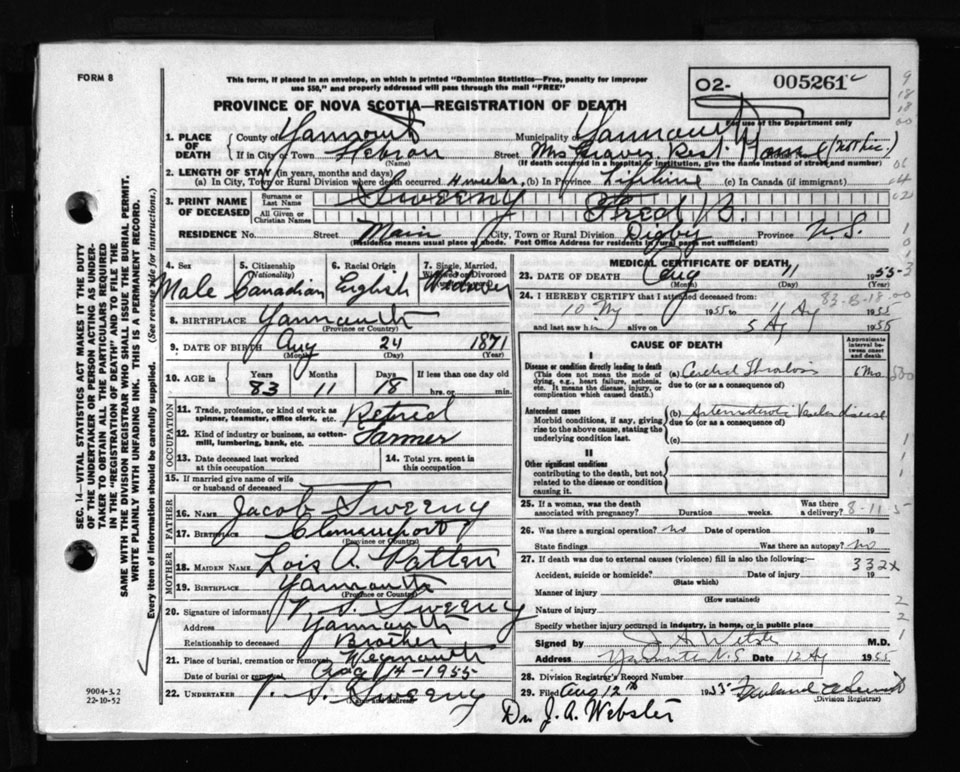 FORM 8
This form, if placed in an envelope, on which is printed "Dominion Statistics—Free, penalty for improper
use $50," and properly addressed will pass through the mail "FREE"
O2- 005261 c
PROVINCE OF NOVA SCOTIA—REGISTRATION OF DEATH
For use of the Department only
1. PLACE OF DEATH County of Yarmouth Municipality of Yarmouth
If in City or Town Hebron (Name) Street Mrs Graves Rest Home (not lic.)
(If death occurred in a hospital or institution, give the name instead of street and number)
2. LENGTH OF STAY (in years, months and days)
(a) In City, Town or Rural Division where death occurred 4 weeks (b) In Province Lifetime (c) In Canada (if immigrant)
3. PRINT NAME OF DECEASED Surname or Last Name Sweeny All Given or Christian Names Fred B.
RESIDENCE No. Street Main City, Town or Rural Division Digby Province N.S.
(Residence means usual place of abode. Post Office Address for residents in rural parts not sufficient)
4. Sex Male
5. Citizenship (Nationality) Canadian
6. Racial Origin English
7. Single, Married, Widowed or Divorced Widower
8. BIRTHPLACE Yarmouth
(Province or Country)
9. DATE OF BIRTH Aug 24 1871
(Month) (Day) (Year)
10. AGE in Years 83 Months 11 Days 18 If less than one day old hrs. or min.
OCCUPATION
11. Trade, profession, or kind of work as spinner, teamster, office clerk, etc. Retired
12. Kind of industry or business, as cotton-mill, lumbering, bank, etc. Farmer
13. Date deceased last worked at this occupation
14. Total yrs. spent in this occupation
15. If married give name of wife or husband of deceased
FATHER
16. Name Jacob Sweeny
17. Birthplace
(Province or Country)
MOTHER
18. Maiden Name Lois A. Patten
19. Birthplace Yarmouth
(Province or Country)
20. Signature of informant V. S. Sweeny
Address Yarmouth
Relationship to deceased Brother
21. Place of burial, cremation or removal Weymouth
Date of burial or removal Aug 14-1955
22. UNDERTAKER V. S. Sweeny
(Name and address)
MEDICAL CERTIFICATE OF DEATH
23. DATE OF DEATH Aug 11 1955
(Month) (Day) (Year)
24. I HEREBY CERTIFY that I attended deceased from: 83-8-18
10 My 1955 to 11 Ag 1955
and last saw him alive on 5 Ag 1955
CAUSE OF DEATH
Approximate interval between onset and death
I
Disease or condition directly leading to death
(This does not mean the mode of dying, e.g., heart failure, asthenia, etc. It means the disease, injury, or complication which caused death.)
(a) Cerebral Thrombosis 6 Mo.
due to (or as a consequence of)
Antecedent causes
Morbid conditions, if any, giving rise to the above cause, stating the underlying condition last.
(b) Arteriosclerotic Vascular disease
due to (or as a consequence of)
(c)
II
Other significant conditions
contributing to the death, but not related to the disease or condition causing it.
25. If a woman, was the death associated with pregnancy? Duration weeks. Was there a delivery? 8-11-5
26. Was there a surgical operation? no Date of operation 19
State findings Was there an autopsy? no
27. If death was due to external causes (violence) fill in also the following: 332x
Accident, suicide or homicide? Date of injury 19
(State which)
Manner of injury
(How sustained)
Nature of injury
Specify whether injury occurred in industry, in home, or in public place
Signed by J. A. Webster M.D.
Address Yarmouth N.S Date 12 Ag 1955
28. Division Registrar's Record Number
29. Filed Aug 12th 1955
(Division Registrar)
Dr. J. A. Webster
SEC. 14—VITAL STATISTICS ACT MAKES IT THE DUTY
OF THE UNDERTAKER OR PERSON ACTING AS UNDER-
TAKER TO OBTAIN ALL THE PARTICULARS REQUIRED
IN THE "REGISTRATION OF DEATH" AND TO FILE THE
SAME WITH THE DIVISION REGISTRAR WHO SHALL ISSUE THE BURIAL PERMIT.
WRITE PLAINLY WITH UNFADING INK. THIS IS A PERMANENT RECORD.
Every item of information should be carefully supplied. (See reverse side for instructions.)
9004-3.2
22-10-52